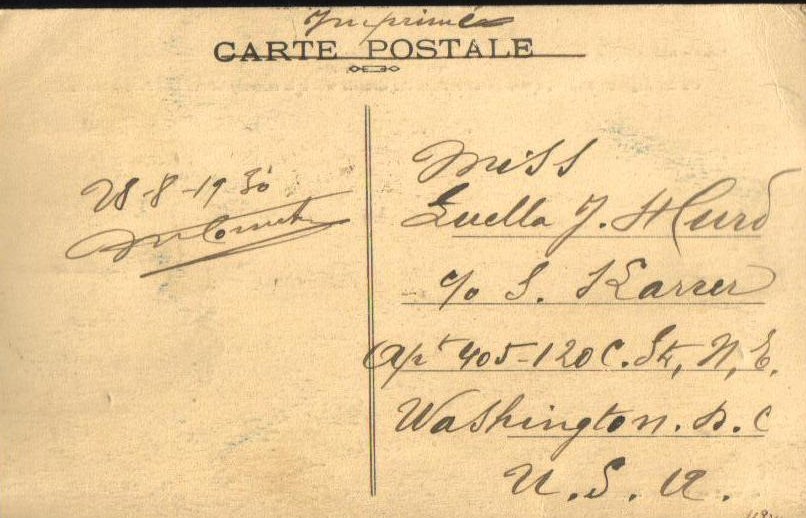 Imprimée
CARTE POSTALE
28-8-1930
Miss
Luella J. Hurd
c/o S. Karrer
Apt 405-120 C. St, N, E.
Washington. D. C
U. S. A.